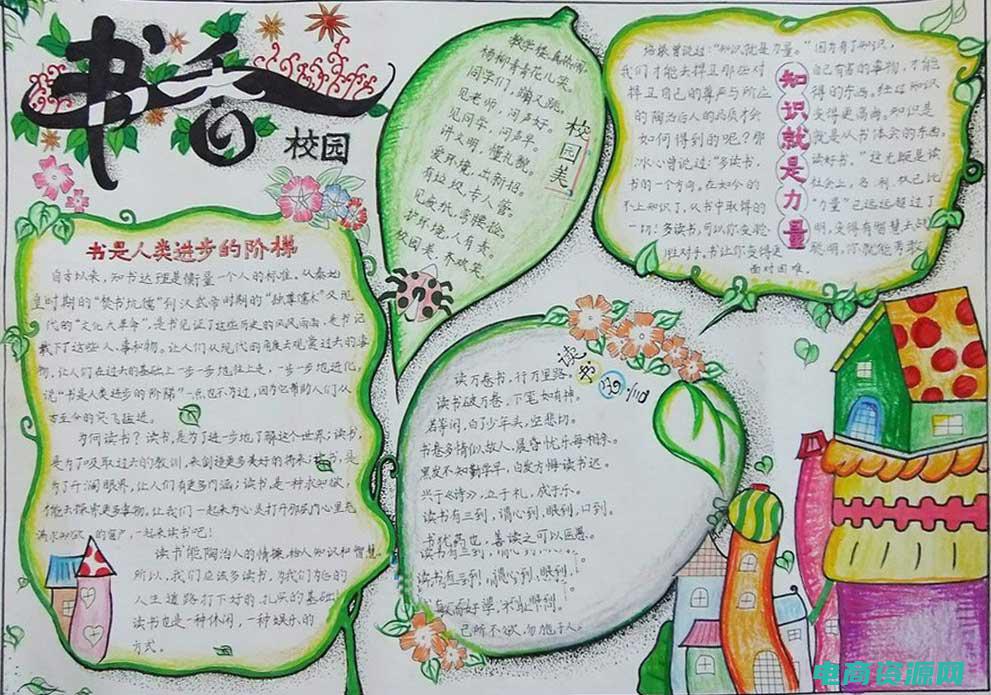 书香
校园
书是人类进步的阶梯
自古以来，知书达理是衡量一个人的标准，从秦始
皇时期的“焚书坑儒”到汉武帝时期的“独尊儒术”又现
代的“文化大革命”，是书见证了这些历史的风风雨雨，是书记
载下了这些人、事和物。让人们从现代的角度去观赏过去的事
物，让人们在过去的基础上一步一步地往上走，一步一步地进化，
说“书是人类进步的阶梯”一点也不为过，因为它帮助人们从
古至今的突飞猛进。
为何读书？读书，是为了进一步地了解这个世界；读书，
是为了吸取过去的教训，来创造更多美好的将来；读书，是
为了开阔眼界，让人们有更多内涵；读书，是一种求知欲，
才能去探索更多事物。让我们一起来为心灵打开那扇内心里充
满求知欲的窗户，一起来读书吧！
读书能陶冶人的情操，给人知识和智慧。
所以，我们应该多读书，为我们为的
人生道路打下好的、扎实的基础！
读书也是一种休闲，一种娱乐的
方式。
校园美
教学楼，真热闹，
杨柳青青花儿笑。
同学们，蹦又跳。
见老师，问声好。
见同学，问声早。
讲文明，懂礼貌。
爱环境，出新招。
有垃圾，专人管。
见废纸，弯腰捡。
护环境，人有责。
校园美，齐欢笑。
知识就是力量
培根曾说过：“知识就是力量。”因为有了知识，
我们才能去捍卫那些对自己有害的事物，才能
捍卫自己的尊严与所应得的东西。经过知识
的陶冶后人的品质才会变得更高尚。知识是
如何得到的呢？那就是从书体会的东西。
冰心曾说过：“多读书，读好书。”这无疑是读
书的一个方向，在如今的社会上，名、利、权已比
不上知识了，从书中取得的“力量”已远远超过了
一切！多读书，可以你变聪明，变得有智慧去战
胜对手，书让你变得更聪明，你就能勇敢
面对困难。
读书
读万卷书，行万里路。
读书破万卷，下笔如有神。
若等闲，白了少年头，空悲切。
书卷多情似故人，晨昏忧乐每相亲。
黑发不知勤学早，白发方悔读书迟。
兴于《诗》，立于礼，成于乐。
读书有三到，谓心到，眼到，口到。
书犹药也，善读之可以医愚。
读书有三到，谓心到
读书有三到，谓心到，眼到，
敏而好学，不耻下问。
己所不欲，勿施于人。
电商资源网